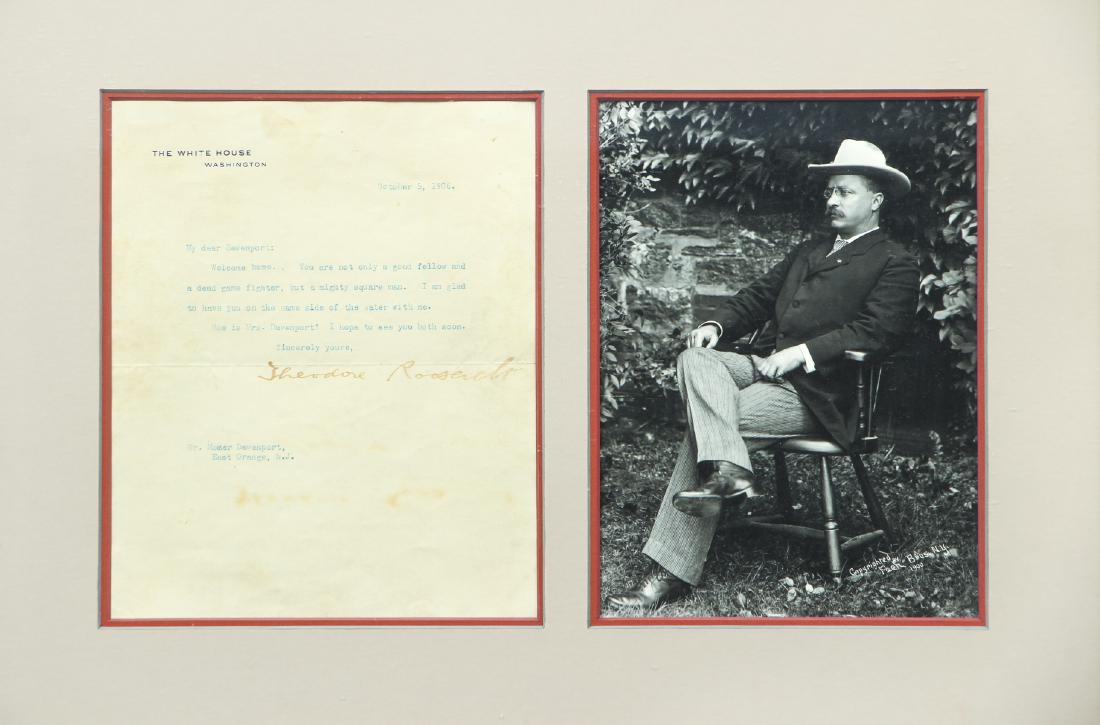 THE WHITE HOUSE
WASHINGTON
October 5, 1906.
My dear Davenport:
Welcome home. You are not only a good fellow and
a dead game fighter, but a mighty square man. I am glad
to have you on the same side of the water with me.
How is Mrs. Davenport? I hope to see you both soon.
Sincerely yours,
Theodore Roosevelt
Mr. Homer Davenport,
East Orange, N.J.
Copyrighted by
Bros. N.Y.
1900